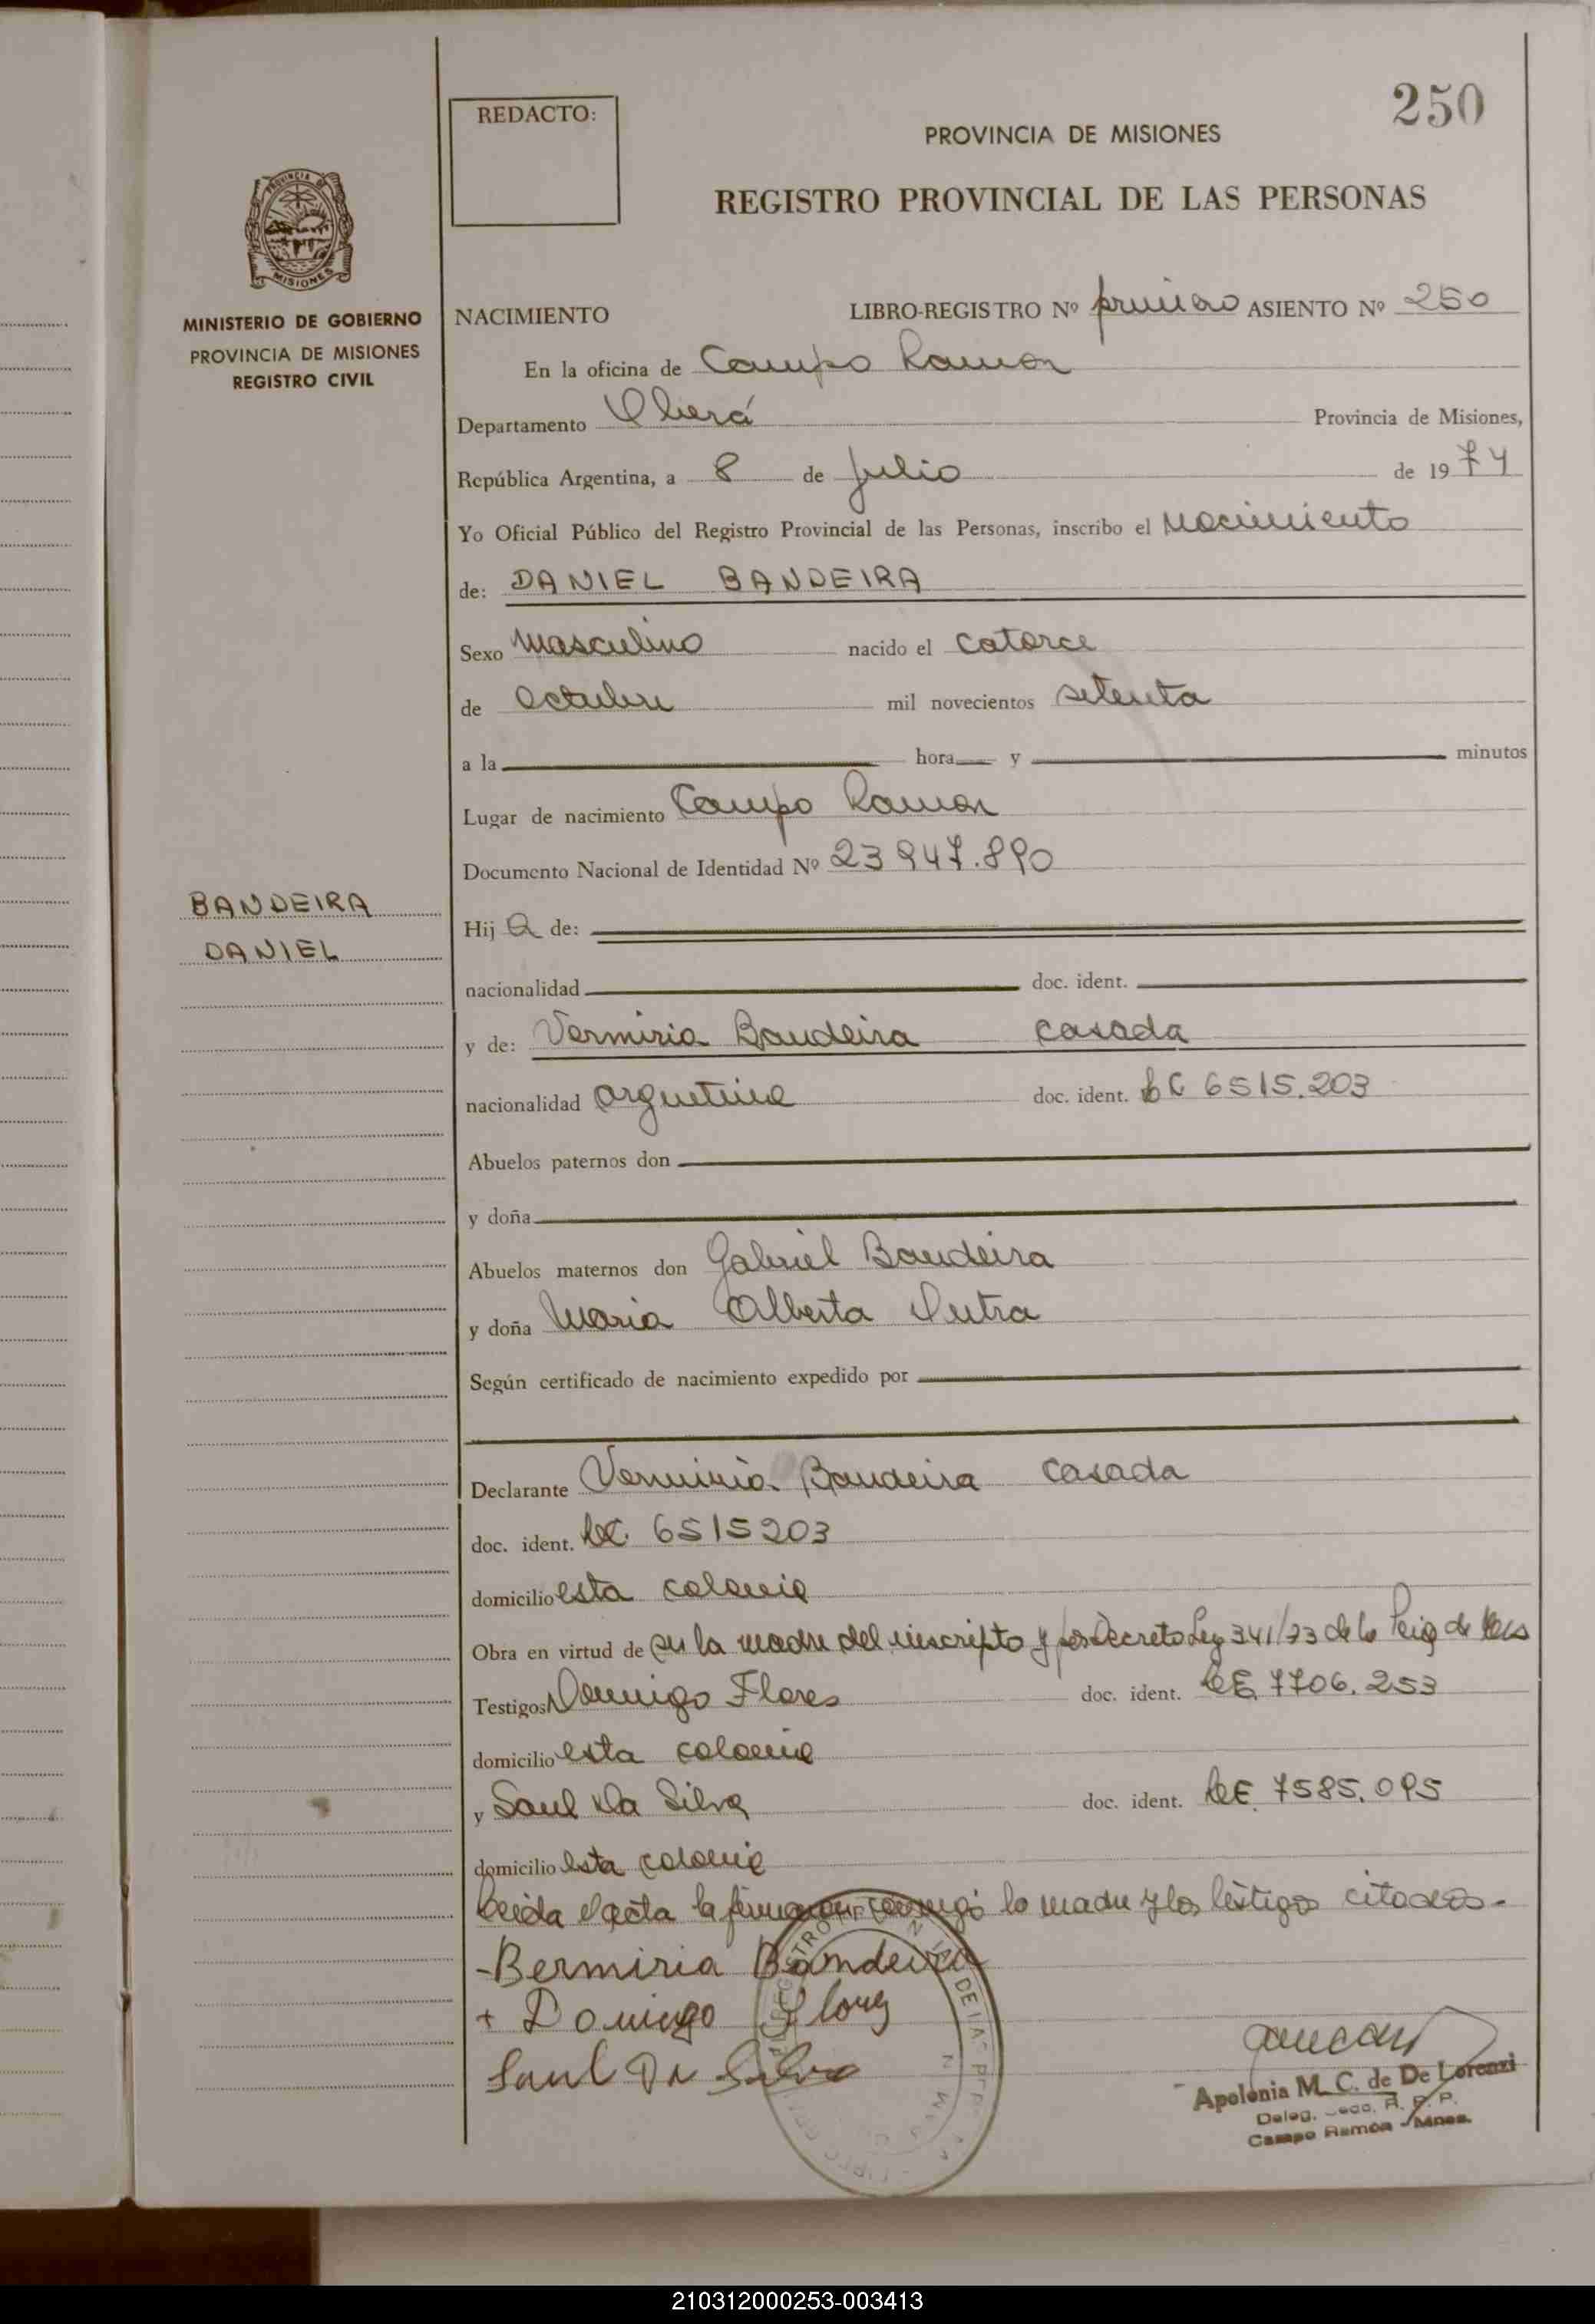 250
REDACTO:
PROVINCIA DE MISIONES
REGISTRO PROVINCIAL DE LAS PERSONAS
PROVINCIA DE
MISIONES
MINISTERIO DE GOBIERNO
PROVINCIA DE MISIONES
REGISTRO CIVIL
NACIMIENTO LIBRO-REGISTRO Nº primero ASIENTO Nº 250
En la oficina de Campo Ramon
Departamento Oberá Provincia de Misiones,
República Argentina, a 8 de Julio de 1974
Yo Oficial Público del Registro Provincial de las Personas, inscribo el Nacimiento
de: DANIEL BANDEIRA
Sexo Masculino nacido el catorce
de Octubre mil novecientos setenta
a la hora y minutos
Lugar de nacimiento Campo Ramon
Documento Nacional de Identidad Nº 23 947.890
BANDEIRA
DANIEL
Hij o de:
nacionalidad doc. ident.
y de: Vermiria Bandeira casada
nacionalidad argentina doc. ident. LC 6515.203
Abuelos paternos don
y doña
Abuelos maternos don Gabriel Bandeira
y doña Maria Alberta Dutra
Según certificado de nacimiento expedido por
Declarante Vermiria Bandeira casada
doc. ident. LC. 6515203
domicilio esta colonia
Obra en virtud de ser la madre del inscripto y por Decreto Ley 341/73 de la Pcia de
Testigos Domingo Flores doc. ident. LE 7706.253
domicilio esta colonia
y Saul Da Silva doc. ident. LE. 7585.095
domicilio esta colonia
Leida el acta la firmaron conmigo la madre y los testigos citados.-
-Bermiria Bandeira
+ Domingo Flores
Saul Da Silva
Apolonia M. C. de De Lorenzi
Deleg. Secc. R. P. P.
Campo Ramón - Mnes.
210312000253-003413